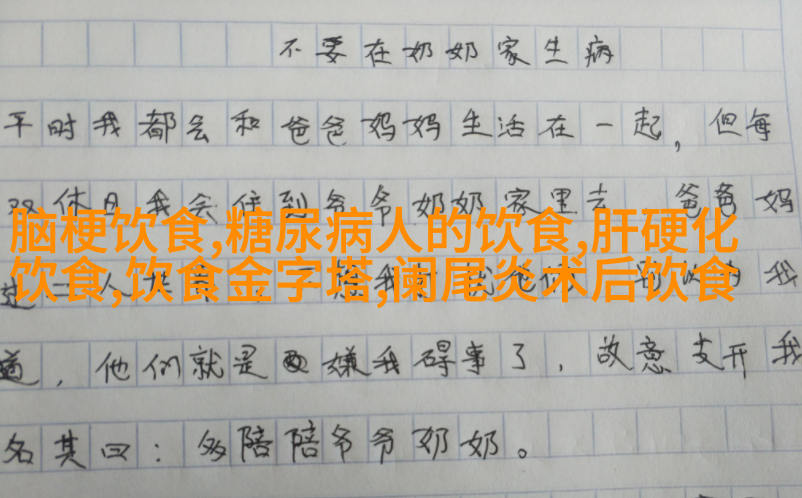 不要在奶奶家生病
平时我都会和爸爸妈妈生活在一起，但每
双休日我会住到爷爷奶奶家里去 爸爸妈
脑梗饮食,糖尿病人的饮食,肝硬化
饮食,饮食金字塔,阑尾炎术后饮食
道，他们就是嫌我碍事了，故意支开我
名其曰：多陪陪爷爷奶奶。